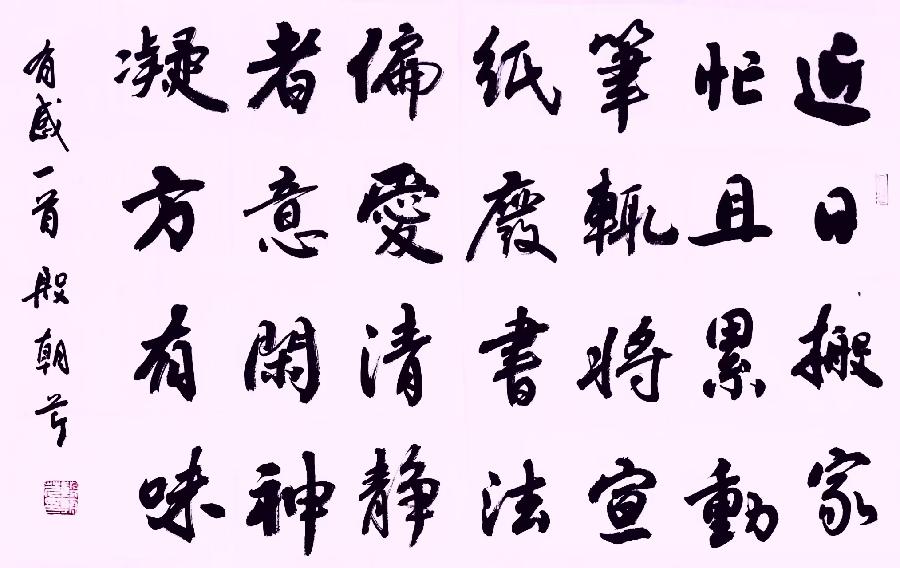 近日搬家
忙且累動
筆輒將宣
紙廢書法
偏愛清静
者意閑神
凝方有味
有感一首 殷朝芹